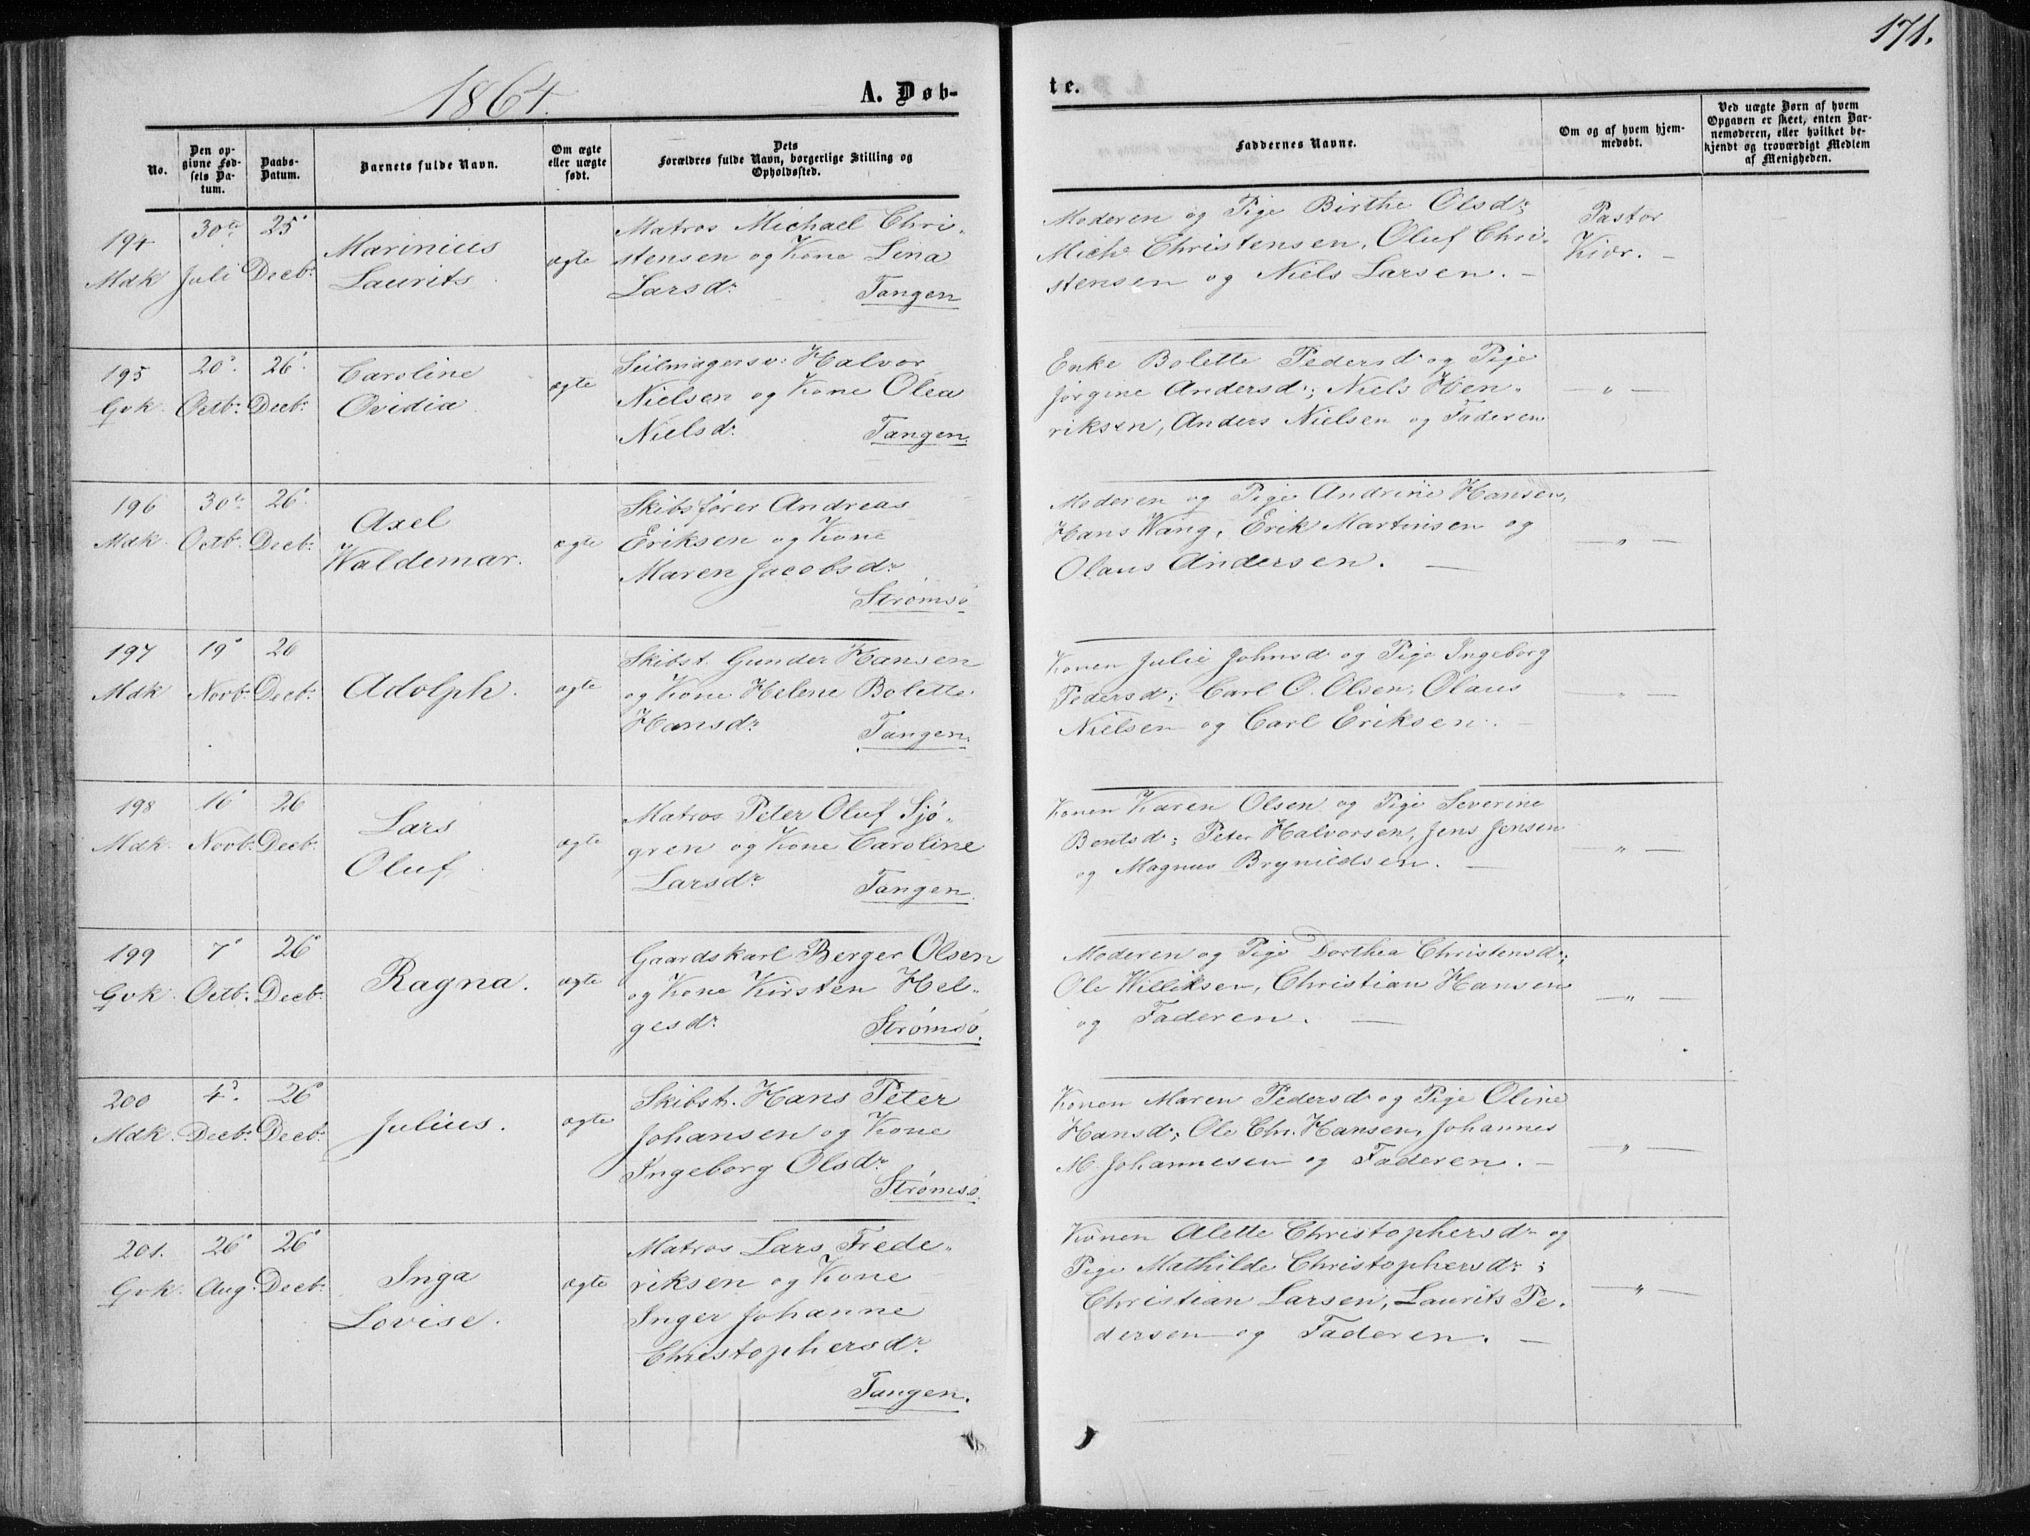 171.
1864.
A. Døb-
te.
No.
Den op-
givne Fød-
sels Da-
tum.
Daabs-
Datum.
Barnets fulde Navn.
Om ægte
eller uægte
født.
Dets
Forældres fulde Navn, borgerlige Stilling og
Opholdssted.
Faddernes Navne.
Om og af hvem hjem-
medøbt.
Ved uægte Børn af hvem
Opgaven er skeet, enten Bar-
nemoderen, eller hvilket be-
kjendt og troværdigt Medlem
af Menigheden.
194
Mdk
30te
Juli
25
Decbr.
Marinius
Laurits
ægte
Matros Michael Chri-
stensen og Kone Lina
Larsdr.
Tangen
Moderen og Pige Birthe Olsdr;
Mich. Christensen, Oluf Chri-
stensen og Niels Larsen. —
Pastor
Kiær. —
195
Gvk.
20.
Octbr.
26.
Decbr.
Caroline
Ovidia
ægte
Seilmagersv. Halvor
Nielsen og Kone Olea
Nielsdr.
Tangen.
Enke Bolette Pedersd og Pige
Jørgine Andersd; Niels Hen-
riksen, Anders Nielsen og Faderen
— " —
196
Mdk.
30te
Octb.
26.
Decbr.
Axel
Waldemar.
ægte
Skibsfører Andreas
Eriksen og Kone
Maren Jacobsdr
Strømsø
Moderen og Pige Andrine Hansen,
Hans Wang, Erik Martinsen og
Olaus Andersen. —
— " —
197
Mdk
19.
Novbr.
26
Decbr.
Adolph.
ægte
Skibst. Gunder Hansen
og Kone Helene Bolette
Hansdr
Tangen.
Konen Julie Johnsd og Pige Ingeborg
Pedersd; Carl O. Olsen, Olaus
Nielsen og Carl Eriksen. —
— " —
198
Mdk.
16
Novbr.
26
Decbr.
Lars
Oluf
ægte
Matros Peter Oluf Sjø-
gren og Kone Caroline
Larsdr
Tangen.
Konen Karen Olsen og Pige Severine
Bentsd; Peter Halvorsen, Jens Jensen
og Magnus Brynildsen. —
— " —
199
Gvk.
7.
Octb.
26
Decbr.
Ragna.
ægte
Gaardskarl Berger Olsen
og Kone Kirsten Hel-
gesdr
Strømsø.
Moderen og Pige Dorthea Christensd;
Ole Williksen, Christian Hansen
og Faderen. —
— " —
200
Mdk.
4.
Decbr.
26
Decbr.
Julius.
ægte
Skibst. Hans Peter
Johansen og Kone
Ingeborg Olsdr
Strømsø.
Konen Maren Pedersd og Pige Oline
Hansd; Ole Chr. Hansen, Johannes
M. Johannesen og Faderen. —
— " —
201.
Gvk.
26
Aug.
26
Decbr.
Inga
Lovise.
ægte
Matros Lars Frede-
riksen og Kone
Inger Johanne
Christophersdr.
Tangen.
Konen Alette Christophersdr og
Pige Mathilde Christophersdr;
Christian Larsen, Laurits Pe-
dersen og Faderen. —
— " —